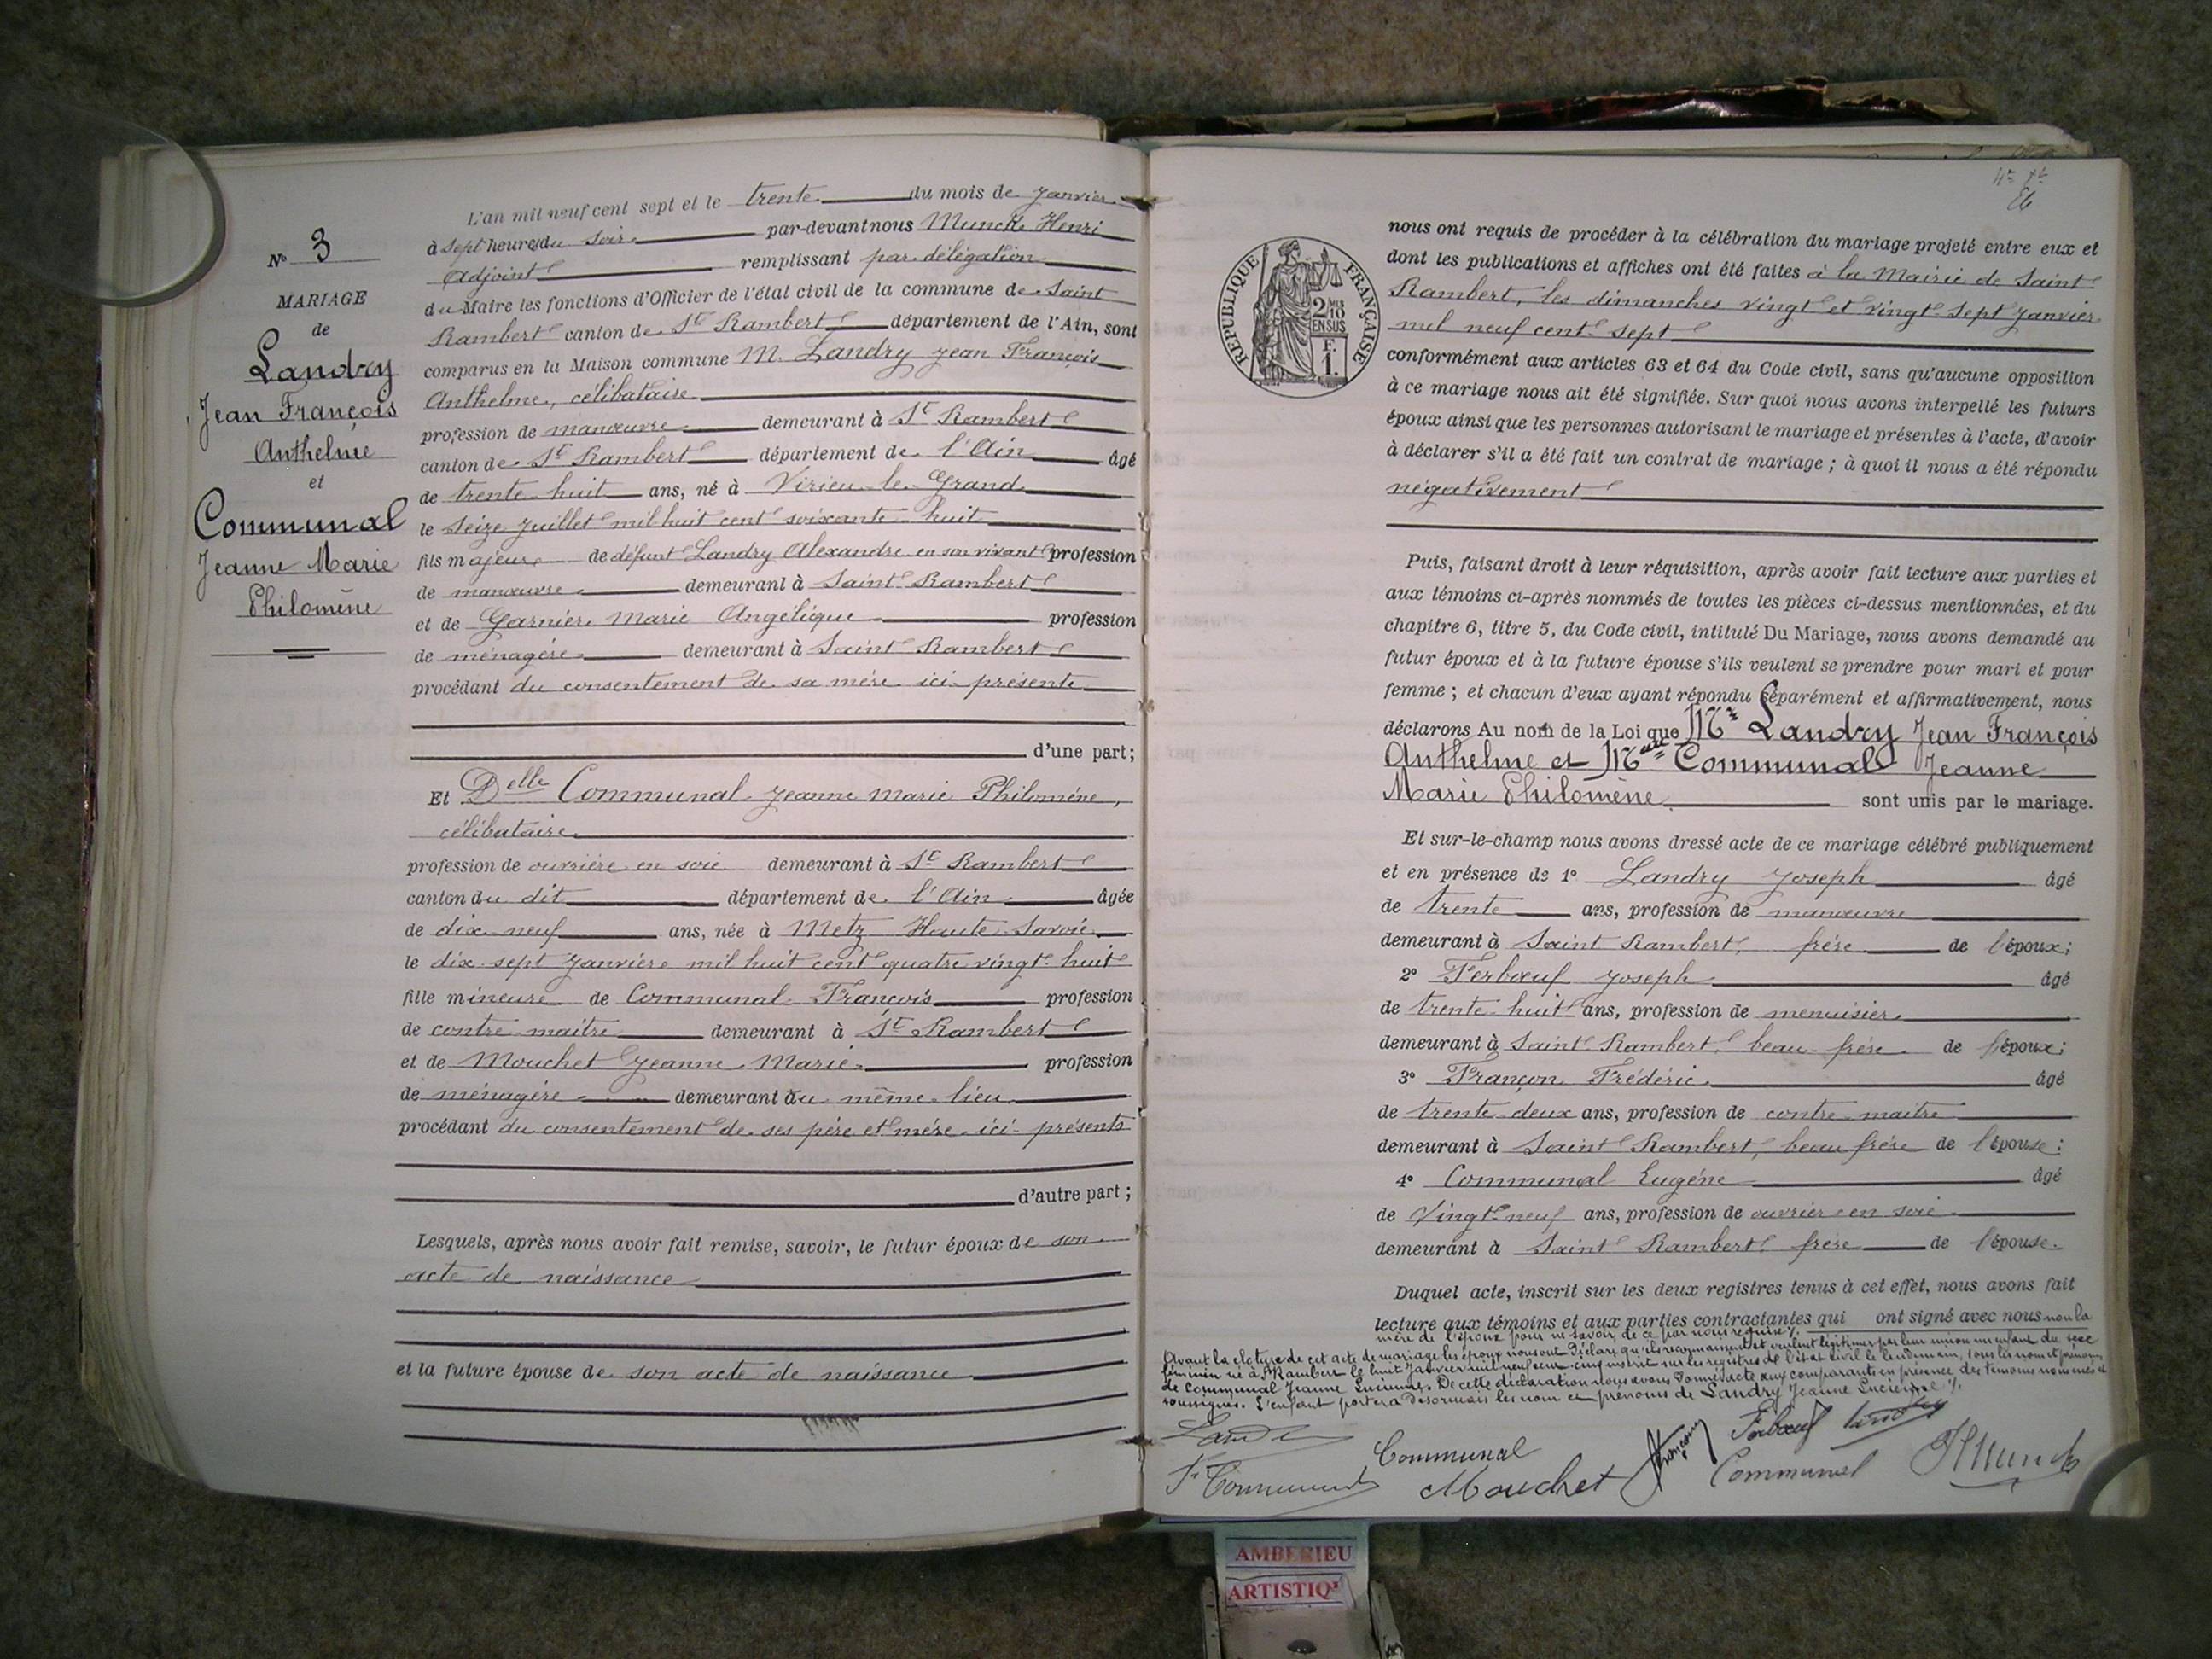 N° 3
MARIAGE
de
Landry
Jean François
Anthelme
et
Communal
Jeanne Marie
Philomène
L'an mil neuf cent sept et le trente du mois de Janvier
à sept heures du soir par-devant nous Munck Henri
Adjoint remplissant par délégation
du Maire les fonctions d'Officier de l'état civil de la commune de Saint
Rambert canton de St Rambert département de l'Ain, sont
comparus en la Maison commune M. Landry Jean François
Anthelme, célibataire
profession de manœuvre demeurant à St Rambert
canton de St Rambert département de l'Ain âgé
de trente-huit ans, né à Virieu-le-Grand
le seize Juillet mil huit cent soixante-huit
fils majeur de défunt Landry Alexandre en son vivant profession
de manœuvre demeurant à Saint Rambert
et de Garnier Marie Angélique profession
de ménagère demeurant à Saint Rambert
procédant du consentement de sa mère ici présente
d'une part;
Et Delle Communal Jeanne Marie Philomène,
célibataire
profession de ouvrière en soie demeurant à St Rambert
canton du dit département de l'Ain âgée
de dix-neuf ans, née à Metz Haute-Savoie
le dix-sept Janvier mil huit cent quatre vingt-huit
fille mineure de Communal François profession
de contre-maître demeurant à St Rambert
et de Mouchet Jeanne Marie profession
de ménagère demeurant au même lieu
procédant du consentement de ses père et mère ici présents
d'autre part;
Lesquels, après nous avoir fait remise, savoir, le futur époux de son
acte de naissance
et la future épouse de son acte de naissance
RÉPUBLIQUE FRANÇAISE
2 10
EN SUS
F.
1.
nous ont requis de procéder à la célébration du mariage projeté entre eux et
dont les publications et affiches ont été faites à la Mairie de Saint
Rambert, les dimanches vingt et vingt-sept Janvier
mil neuf cent sept
conformément aux articles 63 et 64 du Code civil, sans qu'aucune opposition
à ce mariage nous ait été signifiée. Sur quoi nous avons interpellé les futurs
époux ainsi que les personnes autorisant le mariage et présentes à l'acte, d'avoir
à déclarer s'il a été fait un contrat de mariage; à quoi il nous a été répondu
négativement
Puis, faisant droit à leur réquisition, après avoir fait lecture aux parties et
aux témoins ci-après nommés de toutes les pièces ci-dessus mentionnées, et du
chapitre 6, titre 5, du Code civil, intitulé Du Mariage, nous avons demandé au
futur époux et à la future épouse s'ils veulent se prendre pour mari et pour
femme; et chacun d'eux ayant répondu séparément et affirmativement, nous
déclarons Au nom de la Loi que Mr Landry Jean François
Anthelme et Melle Communal Jeanne
Marie Philomène sont unis par le mariage.
Et sur-le-champ nous avons dressé acte de ce mariage célébré publiquement
et en présence de 1° Landry Joseph âgé
de trente ans, profession de manœuvre
demeurant à Saint Rambert, frère de l'époux;
2° Ferbœuf Joseph âgé
de trente-huit ans, profession de menuisier
demeurant à Saint Rambert, beau-frère de l'époux;
3° Françon Frédéric âgé
de trente-deux ans, profession de contre-maître
demeurant à Saint Rambert, beau frère de l'épouse;
4° Communal Eugène âgé
de vingt-neuf ans, profession de ouvrier en soie
demeurant à Saint Rambert, frère de l'épouse.
Duquel acte, inscrit sur les deux registres tenus à cet effet, nous avons fait
lecture aux témoins et aux parties contractantes qui ont signé avec nous non la
mère de l'époux pour ne savoir de ce par nous requise ./.
Avant la cloture de cet acte de mariage les époux nous ont déclaré qu'ils reconnaissent et veulent légitimer par leur union un enfant du sexe
féminin né à St Rambert le huit Janvier mil neuf cent cinq inscrit sur les registres de l'état civil le lendemain, sous les nom et prénoms
de Communal Jeanne Lucienne. De cette déclaration nous avons donné acte aux comparants en présence des témoins nommés et
soussignés. L'enfant portera désormais les nom et prénoms de Landry Jeanne Lucienne ./.
Communal
Françon
Ferbœuf
Landry
Mouchet
Communal
HMunck
AMBERIEU
ARTISTIQ